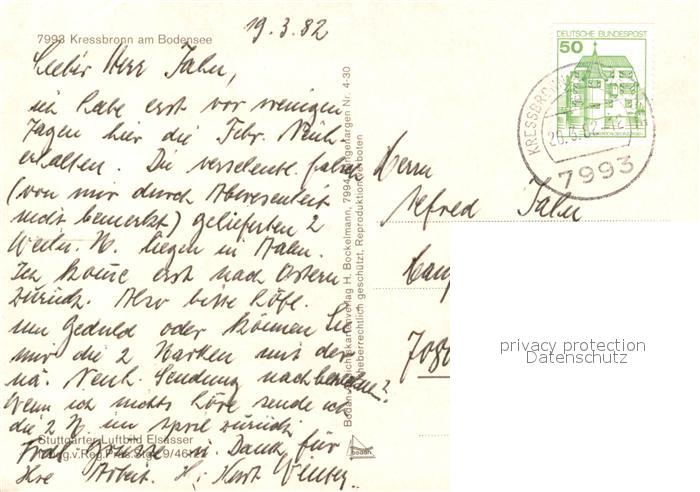 7993 Kressbronn am Bodensee
19.3.82
Lieber Herr Jahn,
ich habe erst vor wenigen
Tagen hier die Febr. Neuh.
erhalten. Die versehentl. falsch
(von mir durch Abwesenheit
nicht bemerkt) gelieferten 2
Weihn. M. liegen in Aalen.
Ich komme erst nach Ostern
zurück. Also bitte höfl.
um Geduld oder können Sie
mir die 2 Marken mit der
nä. Neuh. Sendung nachberechnen?
Wenn ich nichts höre sende ich
die 2 M. im April zurück.
Frdl. Grüsse u. Dank für
Ihre Arbeit. Ihr Kurt
Stuttgarter Luftbild Elsässer
9/46
Bodan H. Bockelmann, 7994 Langenargen Nr. 4-30
urheberrechtlich geschützt, Reproduktion verboten
bodan
DEUTSCHE BUNDESPOST
50
KRESSBRONN
7993
Herrn
Alfred Jahn
privacy protection
Datenschutz